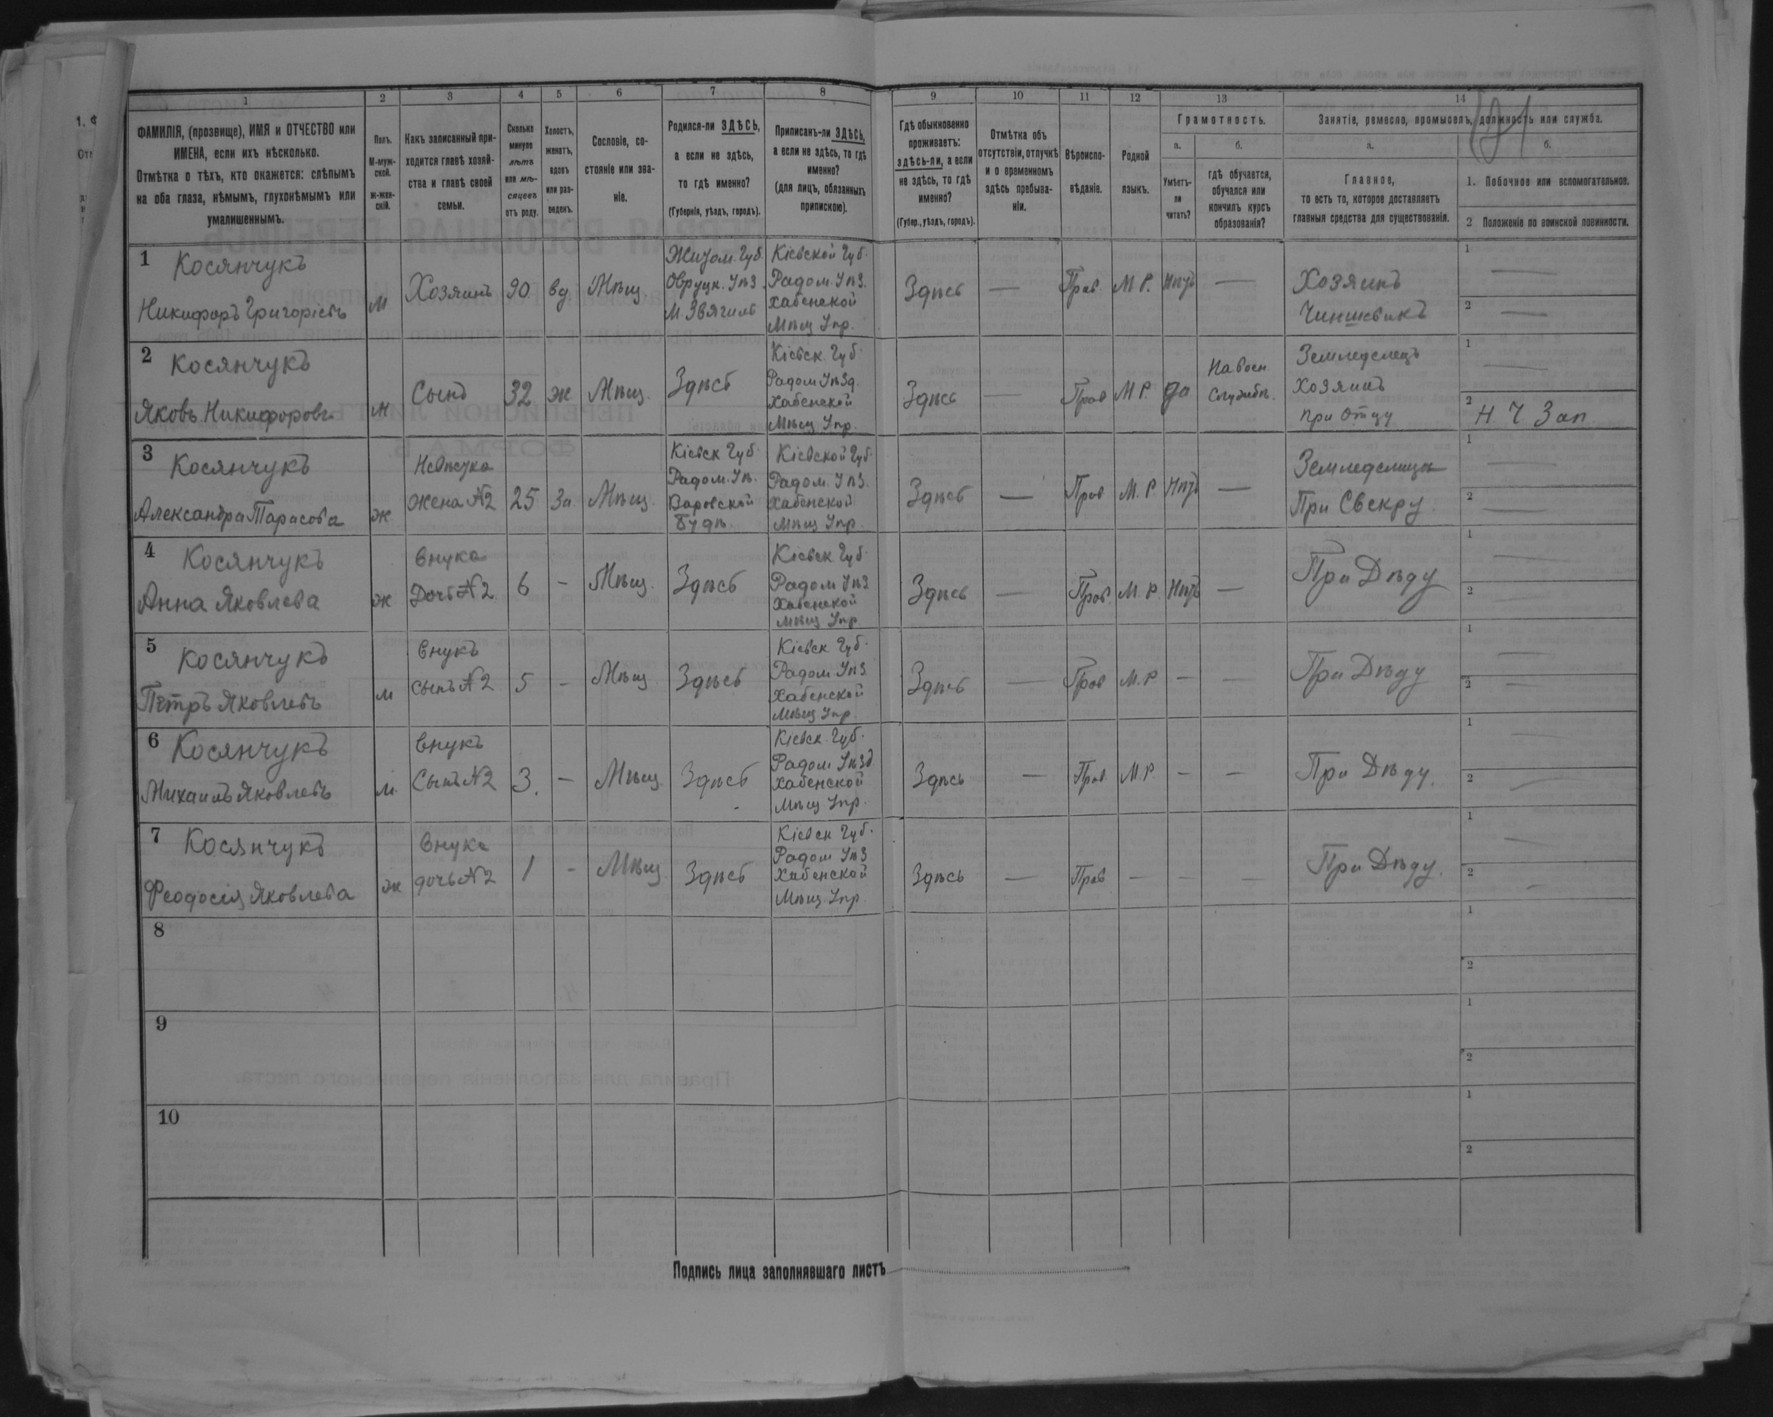 1 2 3 4 5 6 7 8 9 10 11 12 13 14
ФАМИЛІЯ, (прозвище), ИМЯ и ОТЧЕСТВО или
ИМЕНА, если ихъ нѣсколько.
Отмѣтка о тѣхъ, кто окажется: слѣпымъ
на оба глаза, нѣмымъ, глухонѣмымъ или
умалишеннымъ.
Полъ.
М-муж-
ской.
ж-жен-
скій.
Какъ записанный при-
ходится главѣ хозяй-
ства и главѣ своей
семьи.
Сколько
минуло
лѣтъ
или мѣ-
сяцевъ
отъ роду.
Холостъ,
женатъ,
вдовъ
или раз-
веденъ.
Сословіе, со-
стояніе или зва-
ніе.
Родился-ли ЗДѢСЬ,
а если не здѣсь,
то гдѣ именно?
(Губернія, уѣздъ, городъ).
Приписанъ-ли ЗДѢСЬ,
а если не здѣсь, то гдѣ
именно?
(для лицъ, обязанныхъ
припискою).
Гдѣ обыкновенно
проживаетъ:
здѣсь-ли, а если
не здѣсь, то гдѣ
именно?
(Губер., уѣздъ, городъ).
Отмѣтка объ
отсутствіи, отлучкѣ
и о временномъ
здѣсь пребыва-
ніи.
Вѣроиспо-
вѣданіе.
Родной
языкъ.
Грамотность.
а.
Умѣетъ-
ли
читать?
б.
гдѣ обучается,
обучался или
кончилъ курсъ
образованія?
Занятіе, ремесло, промыселъ, должность или служба.
а.
Главное,
то есть то, которое доставляетъ
главныя средства для существованія.
б.
1. Побочное или вспомогательное.
2 Положеніе по воинской повинности.
1 Косянчукъ
Никифоръ Григоріевъ
м
Хозяинъ
90
вд
Мѣщ
Житом. Губ.
Овруцк. Уѣз.
М. Звягиль
Кіевской Губ.
Радом. Уѣз.
Хабенской
Мѣщ Упр.
Здѣсь
—
Прав
М Р.
Нѣтъ
—
Хозяинъ
Чиншевикъ
1 —
2 —
2 Косянчукъ
Яковъ Никифоровъ
м
Сынъ
32
ж
Мѣщ.
Здѣсь
Кіевск. Губ.
Радом Уѣзд.
Хабенской
Мѣщ. Упр.
Здѣсь
—
Прав
М Р.
да
На воен
Службѣ.
Земледелецъ
Хозяинъ
при отцу
1
2 Н Ч Зап
3 Косянчукъ
Александра Тарасова
ж
Невѣстка
жена №2
25
За
Мѣщ.
Кіевск Губ
Радом. Уѣ.
Варовской
Будѣ.
Кіевской Губ.
Радом. Уѣз.
Хабенской
Мѣщ Упр.
Здѣсь
—
Прав
М. Р
Нѣтъ
—
Земледелица
При Свекру.
1 —
2 —
4 Косянчукъ
Анна Яковлева
ж
внука
Дочь №2
6
–
Мѣщ.
Здѣсь
Кіевск Губ.
Радом Уѣз
Хабенской
Мѣщ Упр
Здѣсь
—
Прав.
М. Р.
Нѣтъ
—
При Дѣду
1 —
2 —
5 Косянчукъ
Пётръ Яковлевъ
м
внукъ
сынъ №2
5
–
Мѣщ
Здѣсь
Кіевск Губ.
Радом Уѣз
Хабенской
Мѣщ Упр.
Здѣсь
—
Прав
М. Р
–
–
При Дѣду
1 —
2 —
6 Косянчукъ
Михаилъ Яковлевъ
м.
внукъ
Сынъ №2
3.
–
Мѣщ.
Здѣсь
Кіевск. Губ.
Радом Уѣзд
Хабенской
Мѣщ Упр.
Здѣсь
—
Прав
М. Р
–
–
При Дѣду.
1 —
2 —
7 Косянчукъ
Феодосія Яковлева
ж
внука
дочь №2
1
–
Мѣщ
Здѣсь
Кіевск Губ.
Радом Уѣз
Хабенской
Мѣщ. Упр
Здѣсь
—
Прав
—
–
—
При Дѣду.
1 —
2 —
8
1
2
9
1
2
10
1
2
Подпись лица заполнявшаго листъ